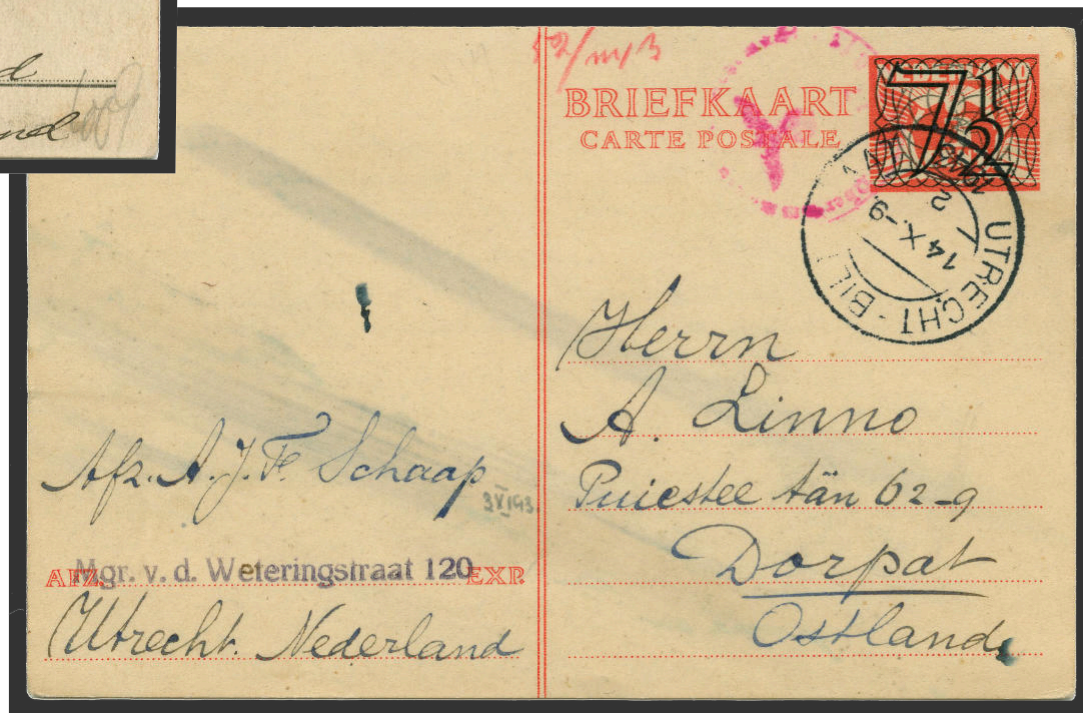 d
and
BRIEFKAART
CARTE POSTALE
NEDERLAND
7½
UTRECHT-BILT
14 X-9
Herrn
A. Linno
Puiestee tän 62-9
Dorpat
Ostland
Afz. A. J. F. Schaap
3 XI 43
AFZ. Mgr. v. d. Weteringstraat 120 EXP.
Utrecht. Nederland